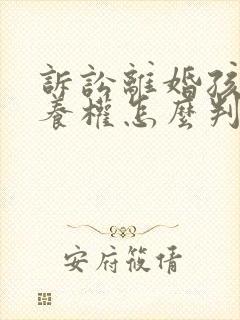 訴訟離婚孩
養權怎麼判
安府筱倩